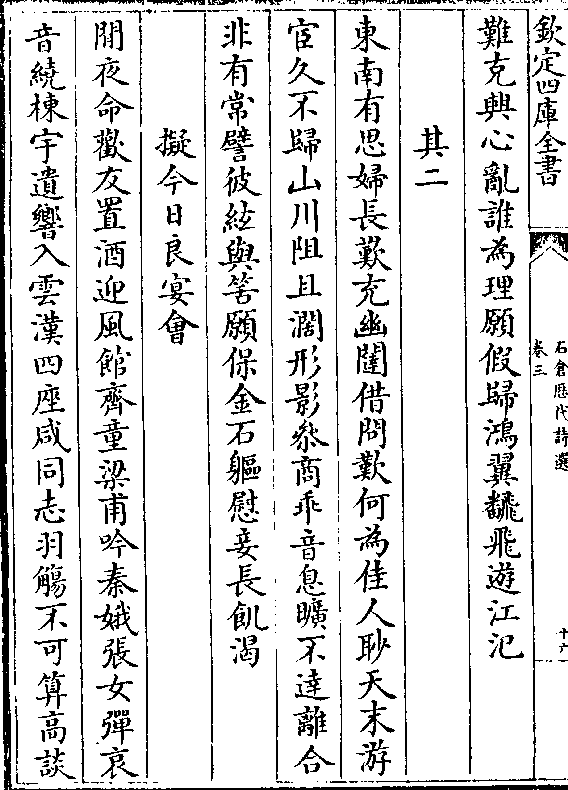 欽定四庫全書
石倉歷代詩選
卷三
十六
難克興心亂誰為理願假歸鴻翼飜飛遊江汜
其二
東南有思婦長歎充幽闥借問歎何為佳人眇天末游
宦久不歸山川阻且濶形影叅商乖音息曠不達離合
非有常譬彼絃與筈願保金石軀慰妾長飢渴
擬今日良宴會
閒夜命歡友置酒迎風館齊童梁甫吟秦娥張女彈哀
音繞棟宇遺響入雲漢四座咸同志羽觴不可算高談